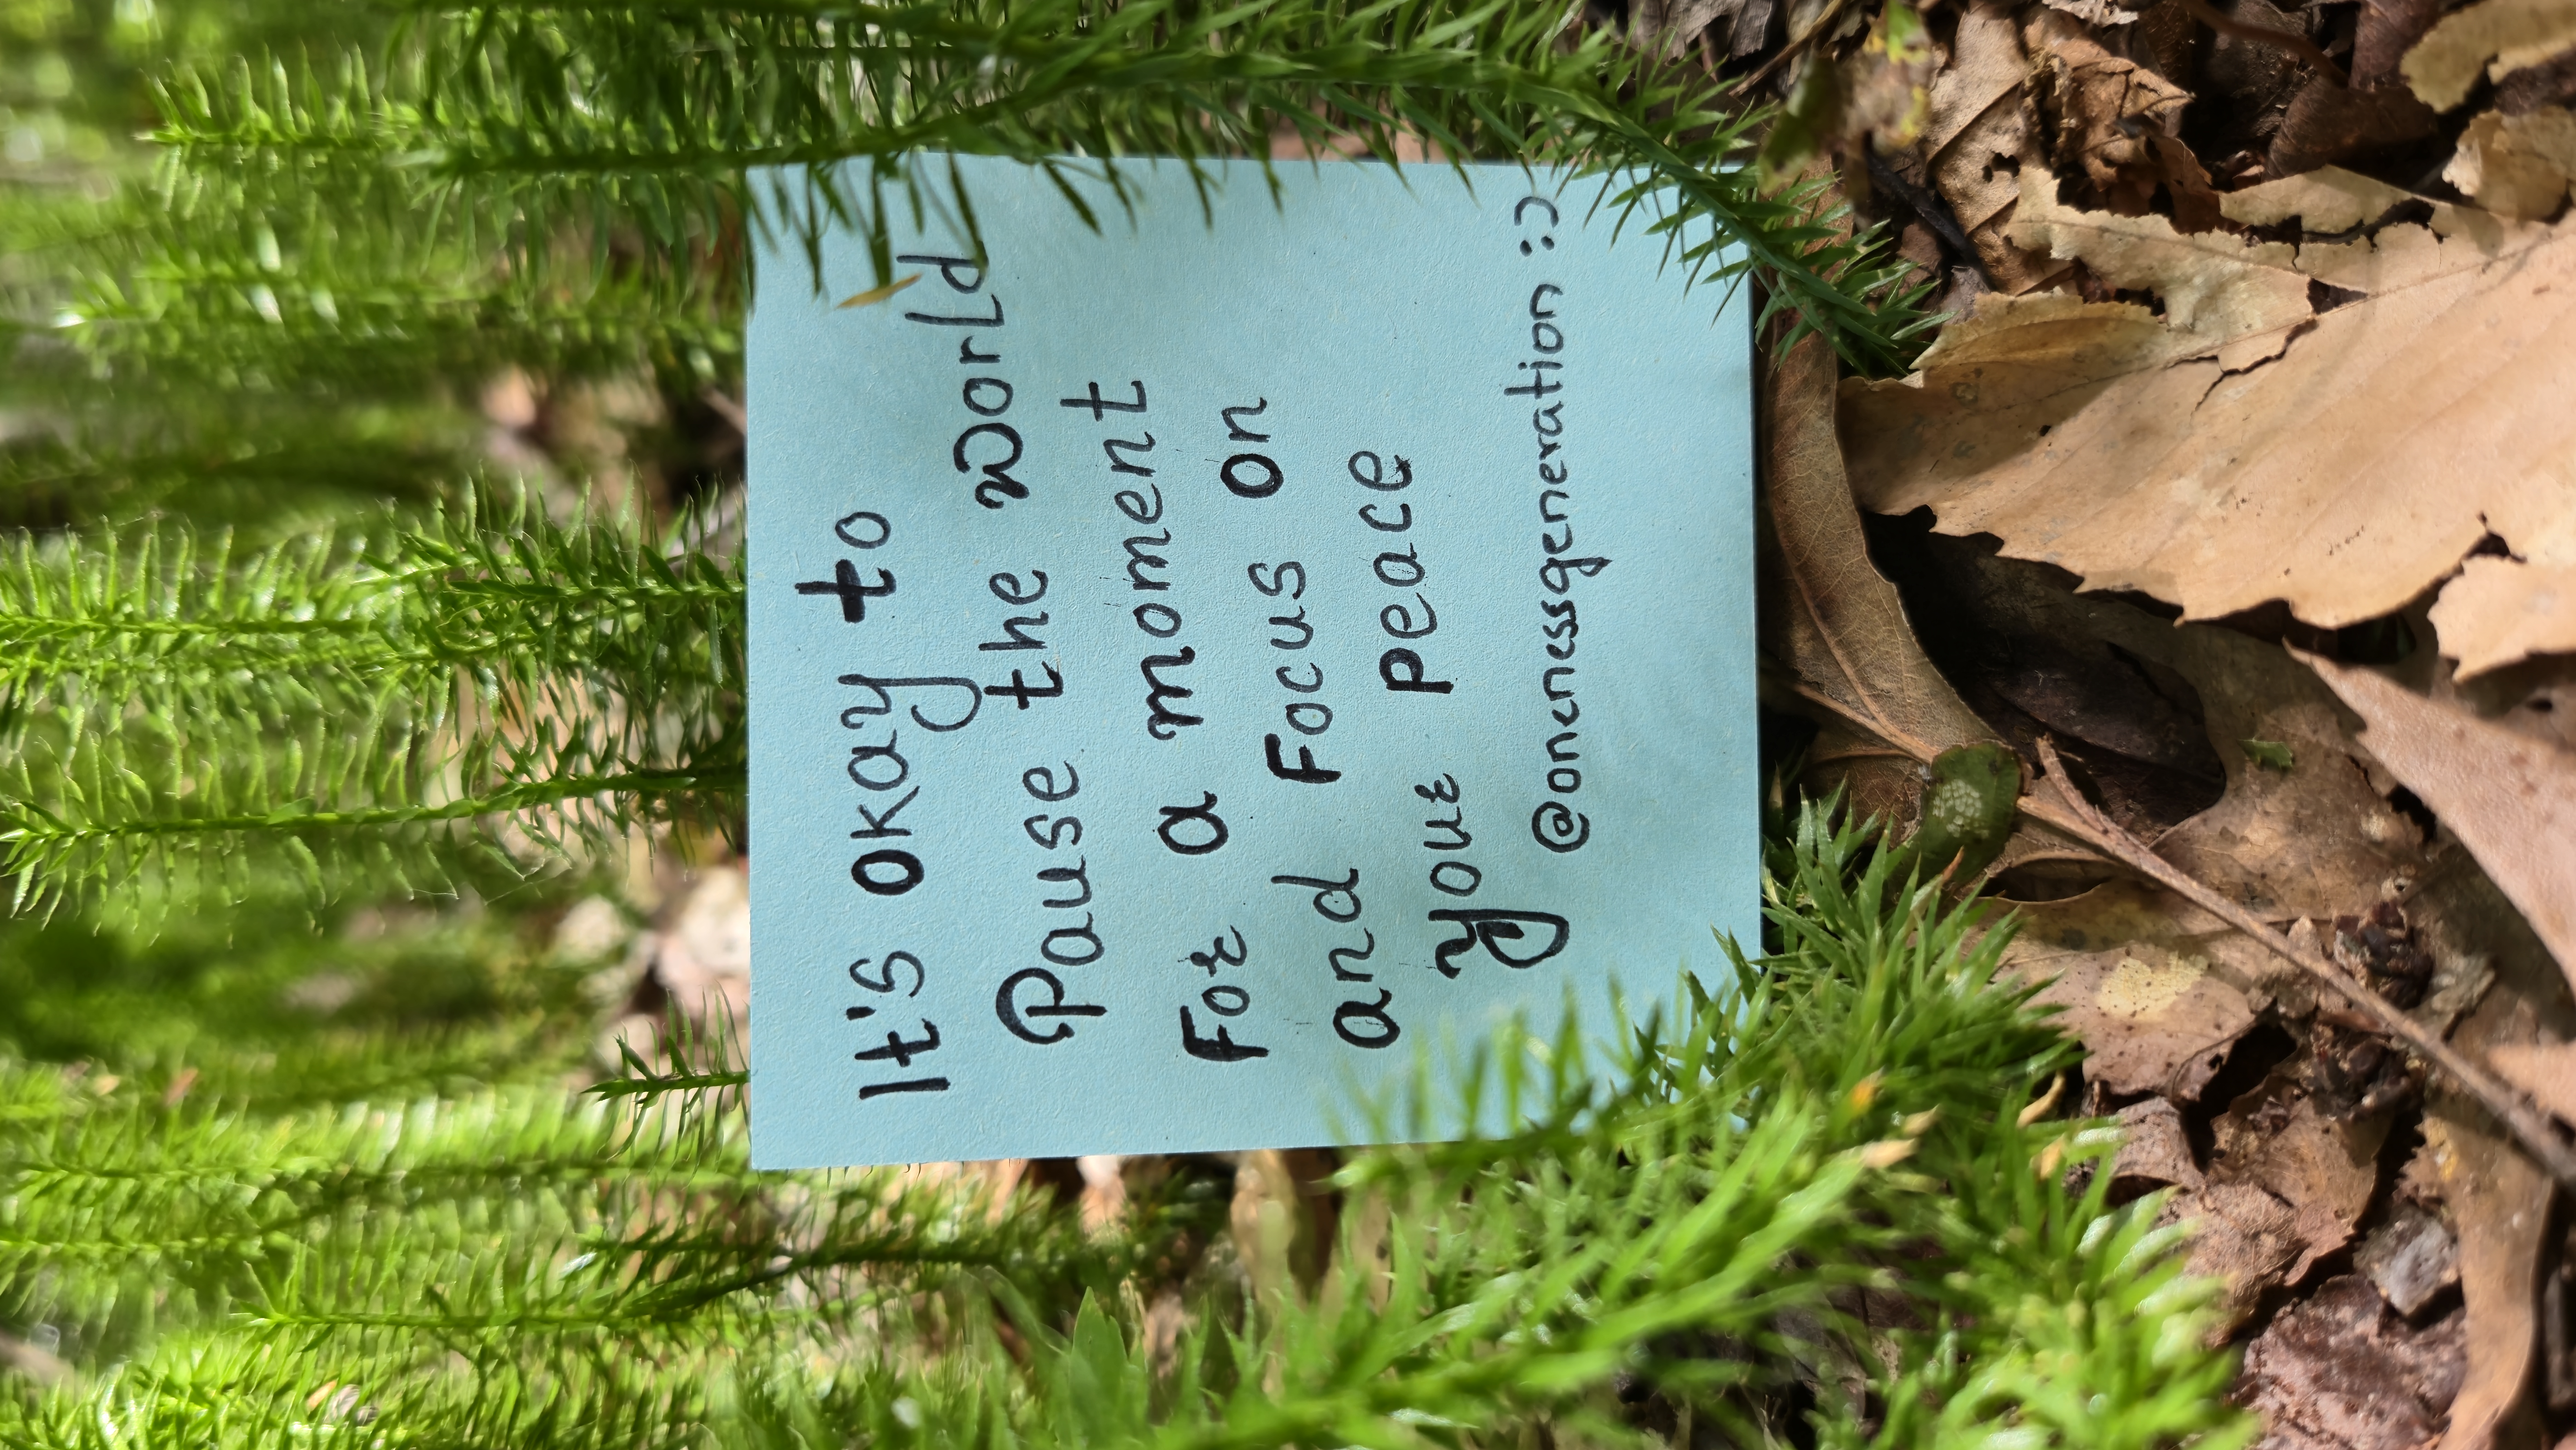 It's okay to
Pause the world
For a moment
and Focus on
your peace
@onenessgeneration :)